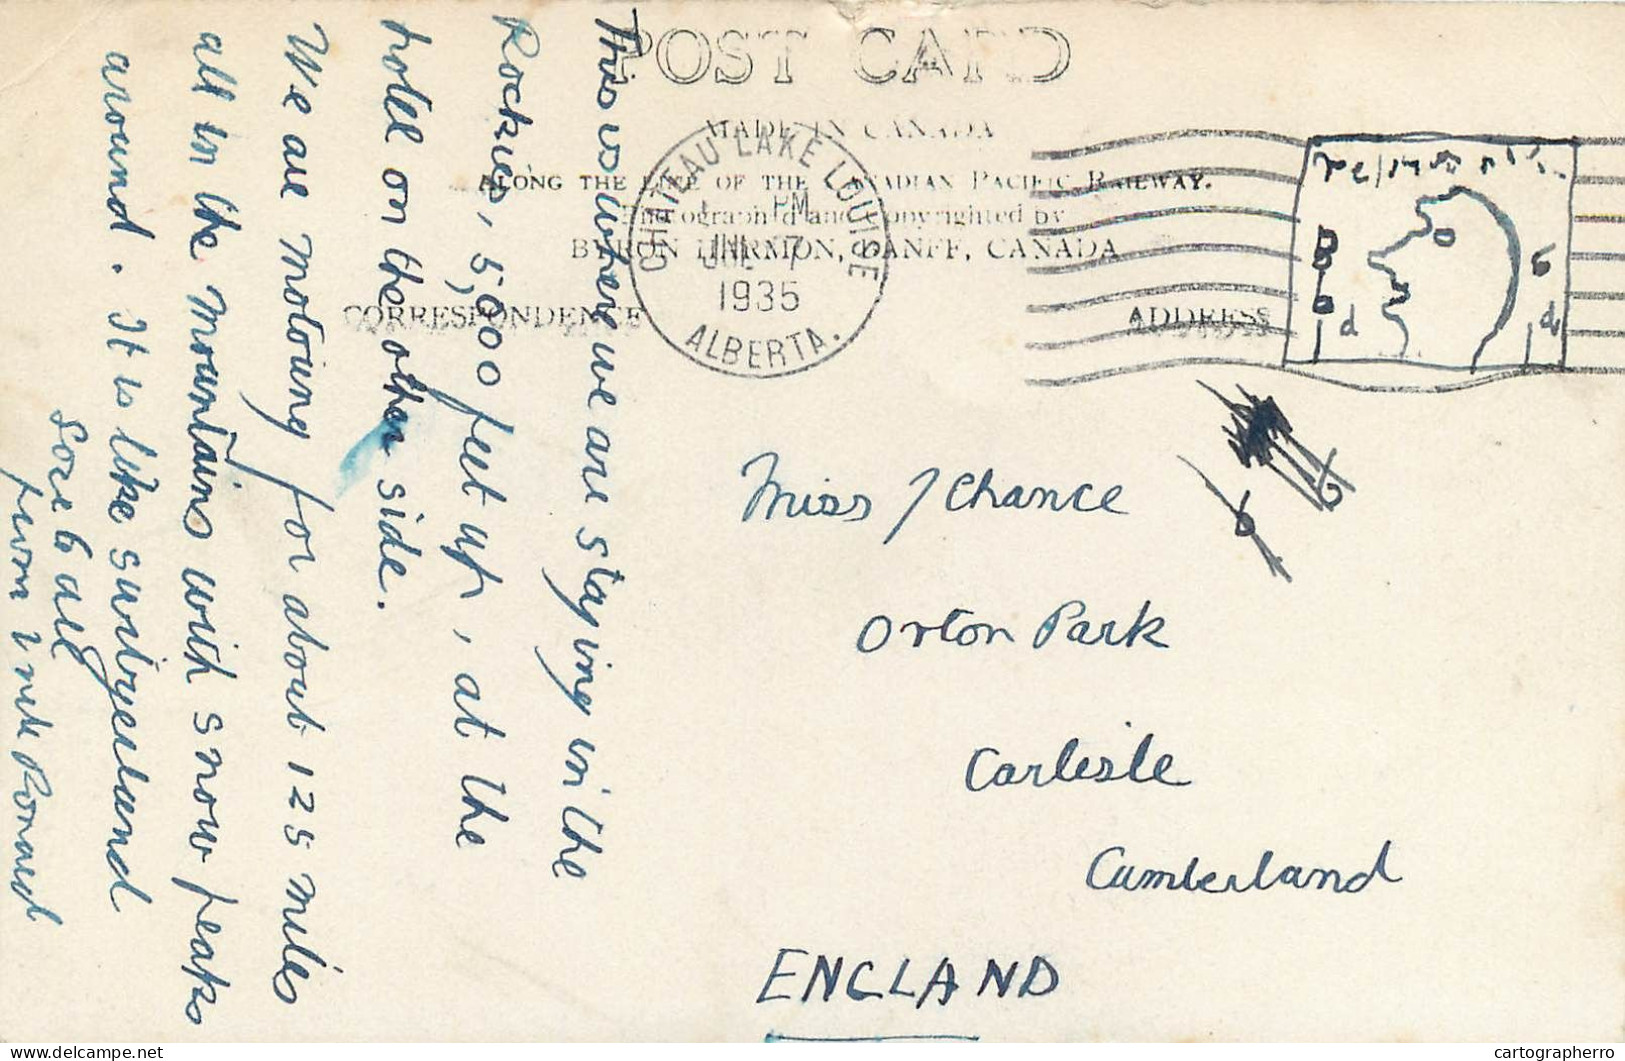 POST CARD
MADE IN CANADA
ALONG THE LINE OF THE CANADIAN PACIFIC RAILWAY.
Photographed and Copyrighted by
BYRON HARMON, BANFF, CANADA
CORRESPONDENCE
ADDRESS
CHATEAU LAKE LOUISE
PM
JUL 7
1935
ALBERTA.
d
6
d
This is where we are staying in the
Rockies, 5,000 feet up, at the
hotel on the other side.
We are motoring for about 125 miles
all in the mountains with snow peaks
around. It is like switzerland
Love to all
from Ronard
Miss J Chance
Orton Park
Carlisle
Cumberland
ENGLAND
cartographerro